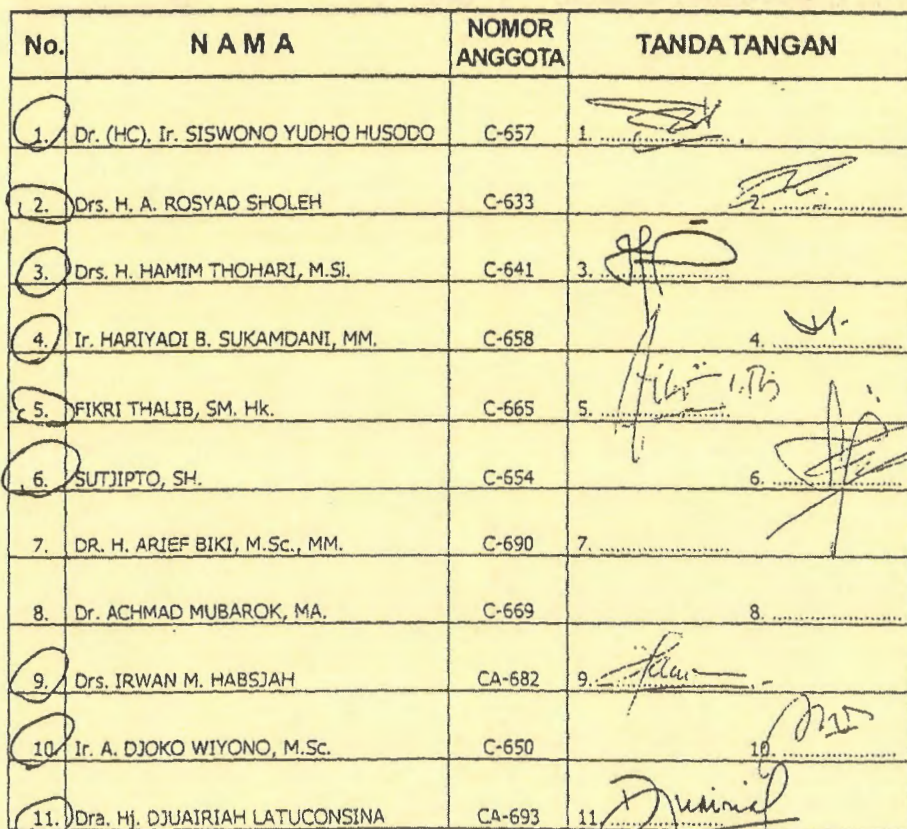 No. N A M A NOMOR ANGGOTA TANDA TANGAN
1. Dr. (HC). Ir. SISWONO YUDHO HUSODO C-657 1. ....................
2. Drs. H. A. ROSYAD SHOLEH C-633 2. ....................
3. Drs. H. HAMIM THOHARI, M.Si. C-641 3. ....................
4. Ir. HARIYADI B. SUKAMDANI, MM. C-658 4. ....................
5. FIKRI THALIB, SM. Hk. C-665 5. ....................
6. SUTJIPTO, SH. C-654 6. ....................
7. DR. H. ARIEF BIKI, M.Sc., MM. C-690 7. ....................
8. Dr. ACHMAD MUBAROK, MA. C-669 8. ....................
9. Drs. IRWAN M. HABSJAH CA-682 9. ....................
10. Ir. A. DJOKO WIYONO, M.Sc. C-650 10. ....................
11. Dra. Hj. DJUAIRIAH LATUCONSINA CA-693 11. ....................